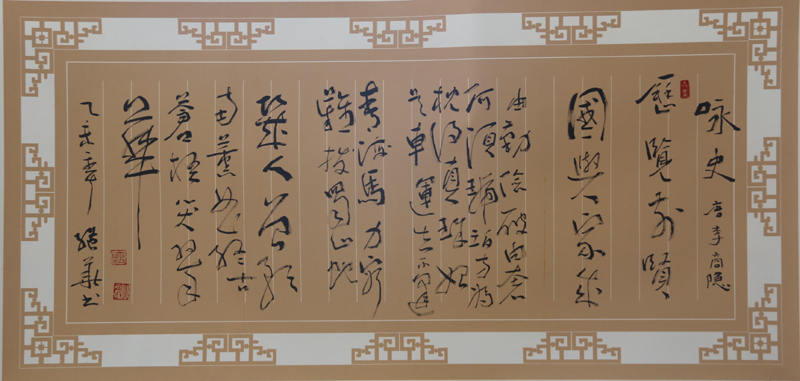 咏史 唐李商隐
歷覽前賢
國與家成
由勤儉破由奢
何須琥珀方為
枕得真珠始
是車運去不逢
青海馬力窮
難拔蜀山蛇
幾人曾預
南薰曲終古
蒼梧哭翠
華
乙未年 继華书